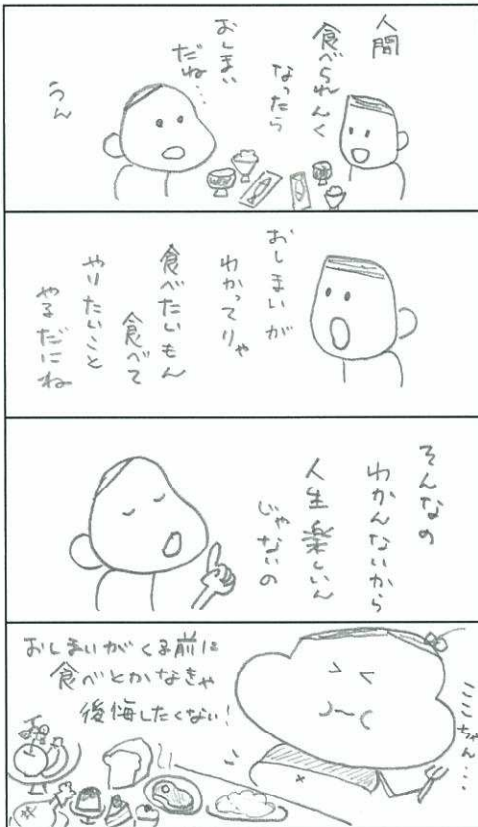 人間
食べられんく
なったら
おしまい
だね…
うん
おしまいが
わかってりゃ
食べたいもん
食べて
やりたいこと
やるだにね
そんなの
わかんないから
人生楽しいん
じゃないの
ここちゃん…
おしまいがくる前に
食べとかなきゃ
後悔したくない!